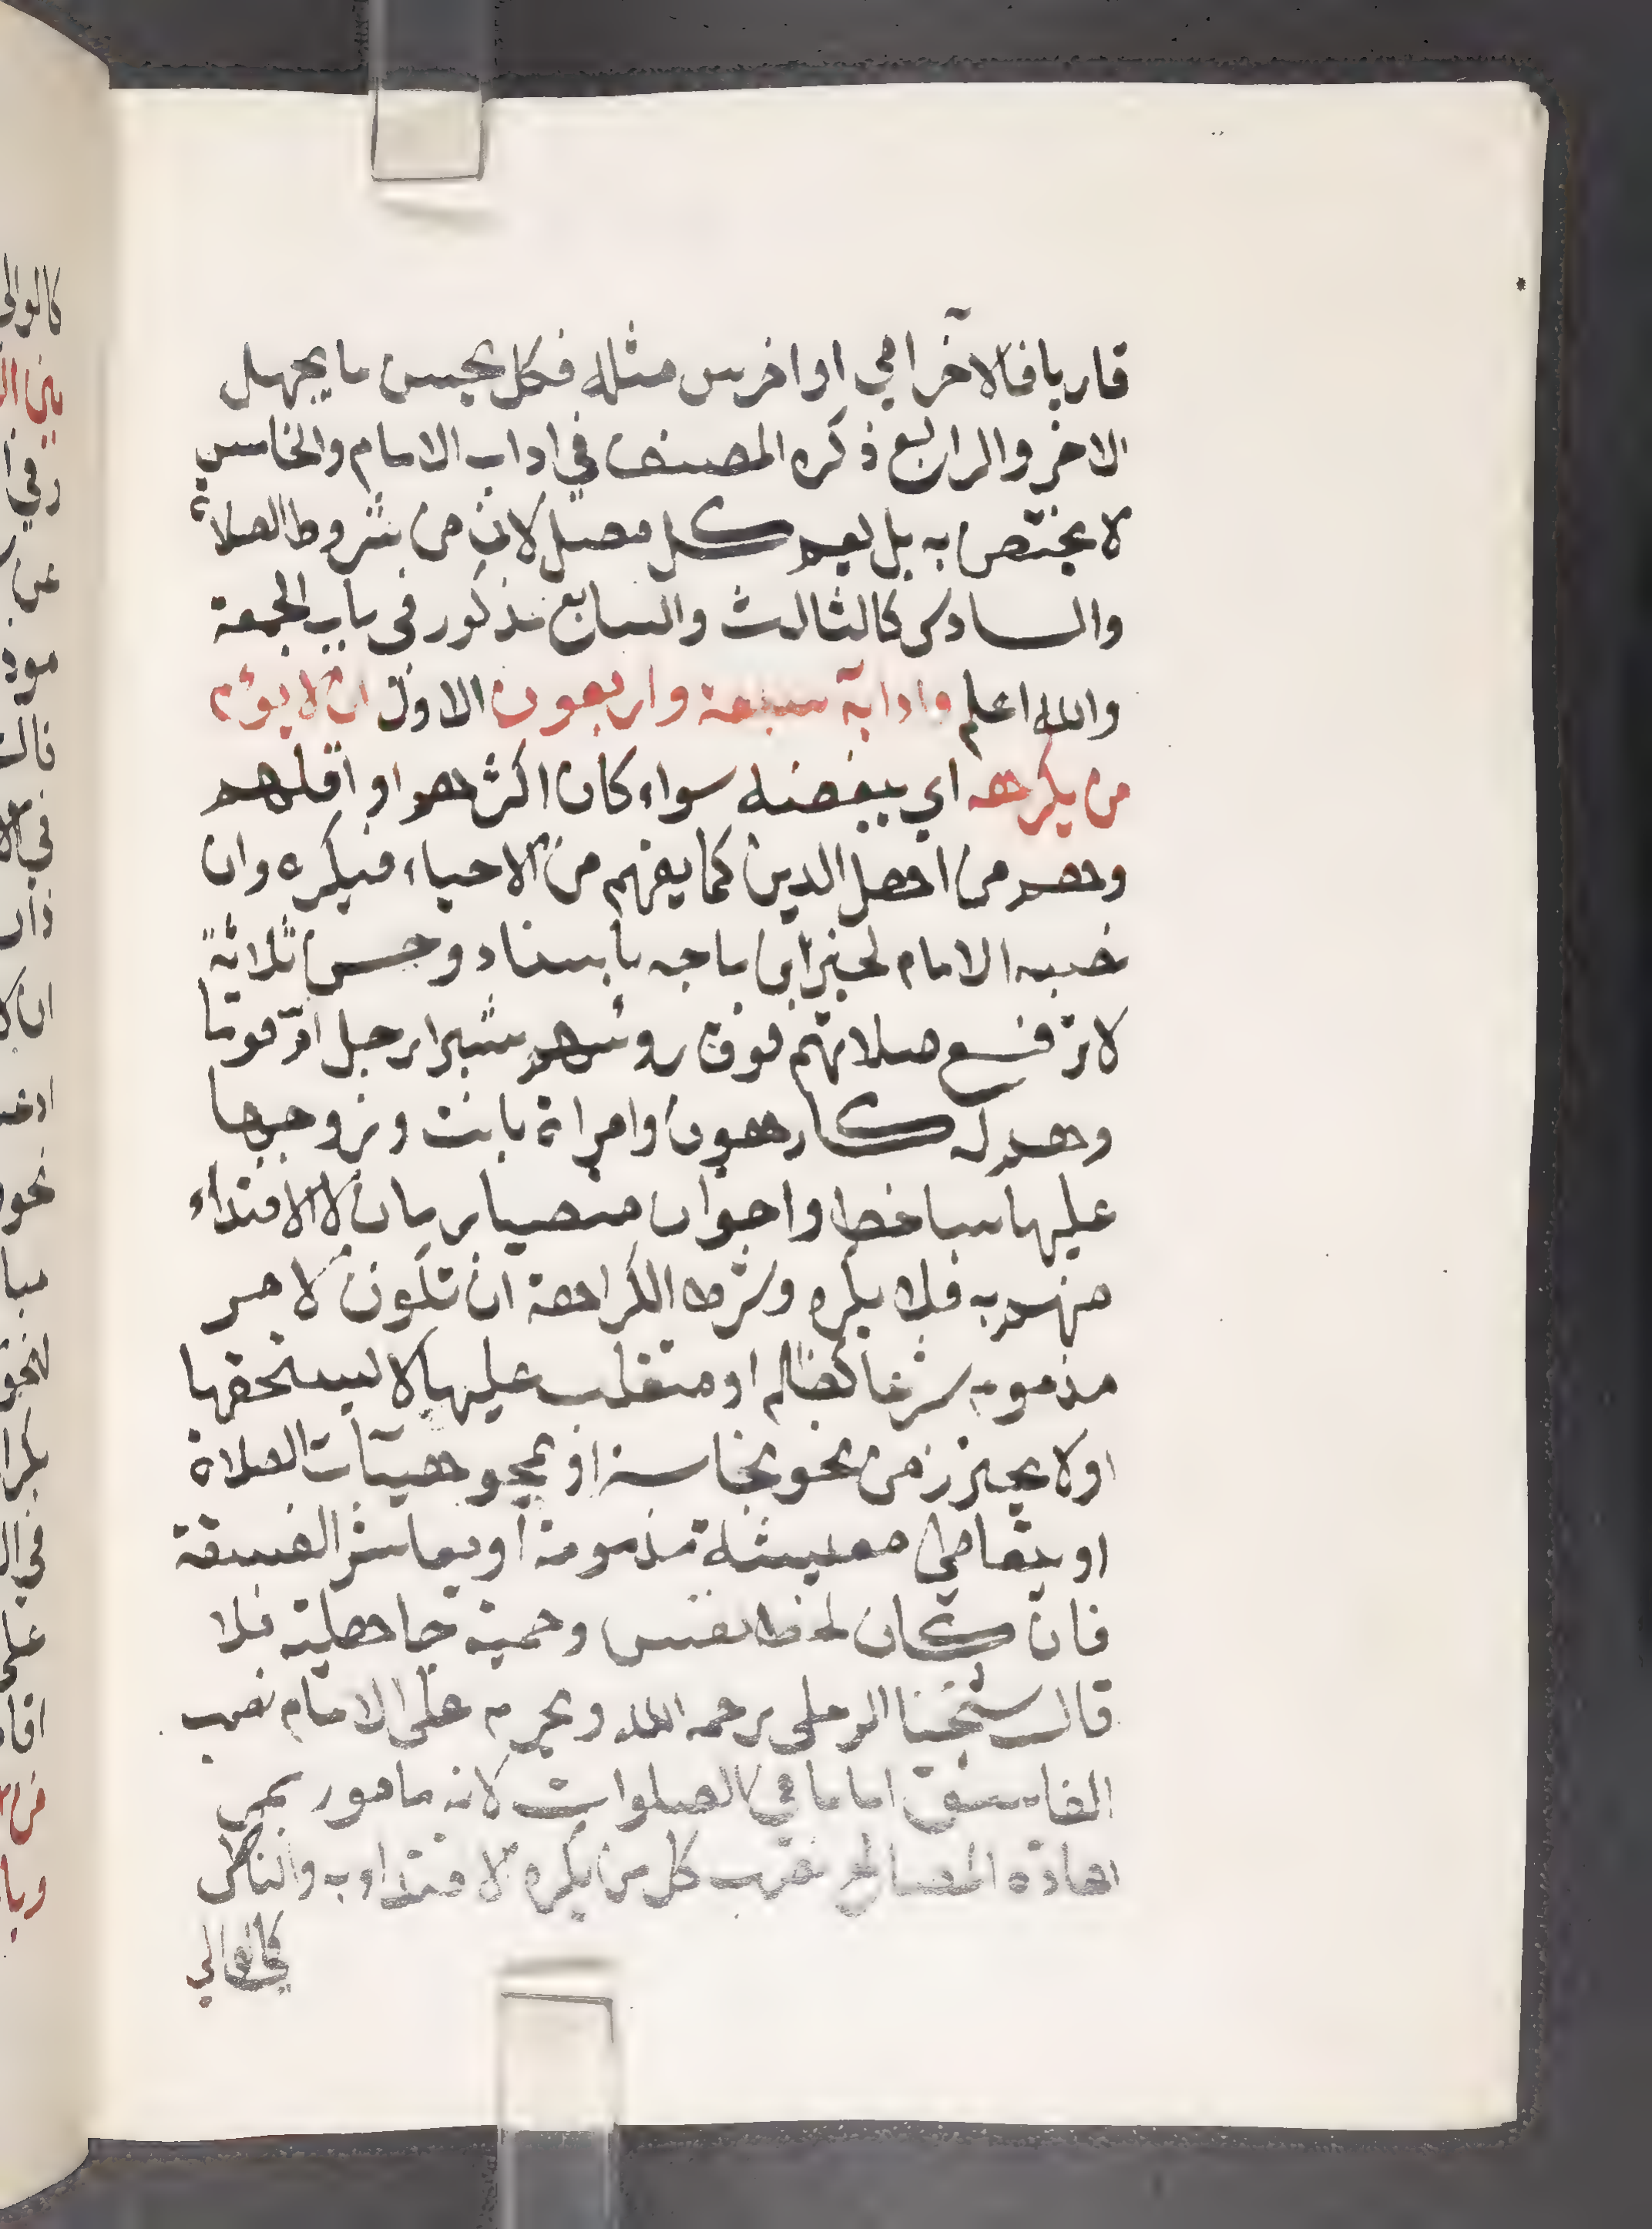 قاريا فالآخر امي او اخرس مثله فكل يحسن ما يجهل
الاخر والرابع ذكره المصنف في اداب الامام والخامس
لا يختص به بل يعم كل مصل لانه من شروط الصلاة
والسادس كالثالث والسابع مذكور في باب الجمعة
والله اعلم وادابه سبعة واربعون الاول ان لا يؤم
من يكرهه اي يبغضه سواء كان اكثرهم او اقلهم
وهم من اهل الدين كما يفهم من الاحياء فيكره وان
نصبه الامام لخبر ابن ماجه باسناد وحسن ثلاثة
لا ترفع صلاتهم فوق رؤسهم شبرا رجل ام قوما
وهم له كارهون وامراة باتت وزوجها
عليها ساخط واخوان متصارمان لا الاقتداء
منهم به فلا يكره وشرط الكراهة ان تكون لامر
مذموم شرعا كظالم او متغلب عليها لا يستحقها
او لا يحترز من نحو نجاسة او يمحو هيئات الصلاة
او يتعاطى معيشة مذمومة او يعاشر الفسقة
فان كان لحظ نفس وحمية جاهلية فلا
قال شيخنا الرملي رحمه الله ويحرم على الامام نصب
الفاسق اماما في الصلوات لانه مامور بمر
اعاة المصالح نصب كل من يكره الاقتداء به والناظر